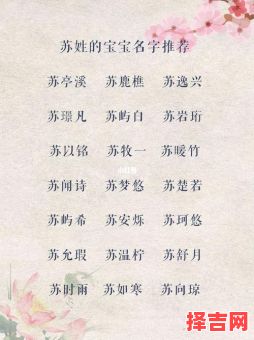 苏姓的宝宝名字推荐
苏亭溪 苏鹿樵 苏逸兴
苏璟凡 苏屿白 苏岩珩
苏以铭 苏牧一 苏暖竹
苏闻诗 苏梦悠 苏楚若
苏屿希 苏安烁 苏珂悠
苏允瑕 苏温柠 苏舒月
苏时雨 苏如寒 苏向琼
择吉网